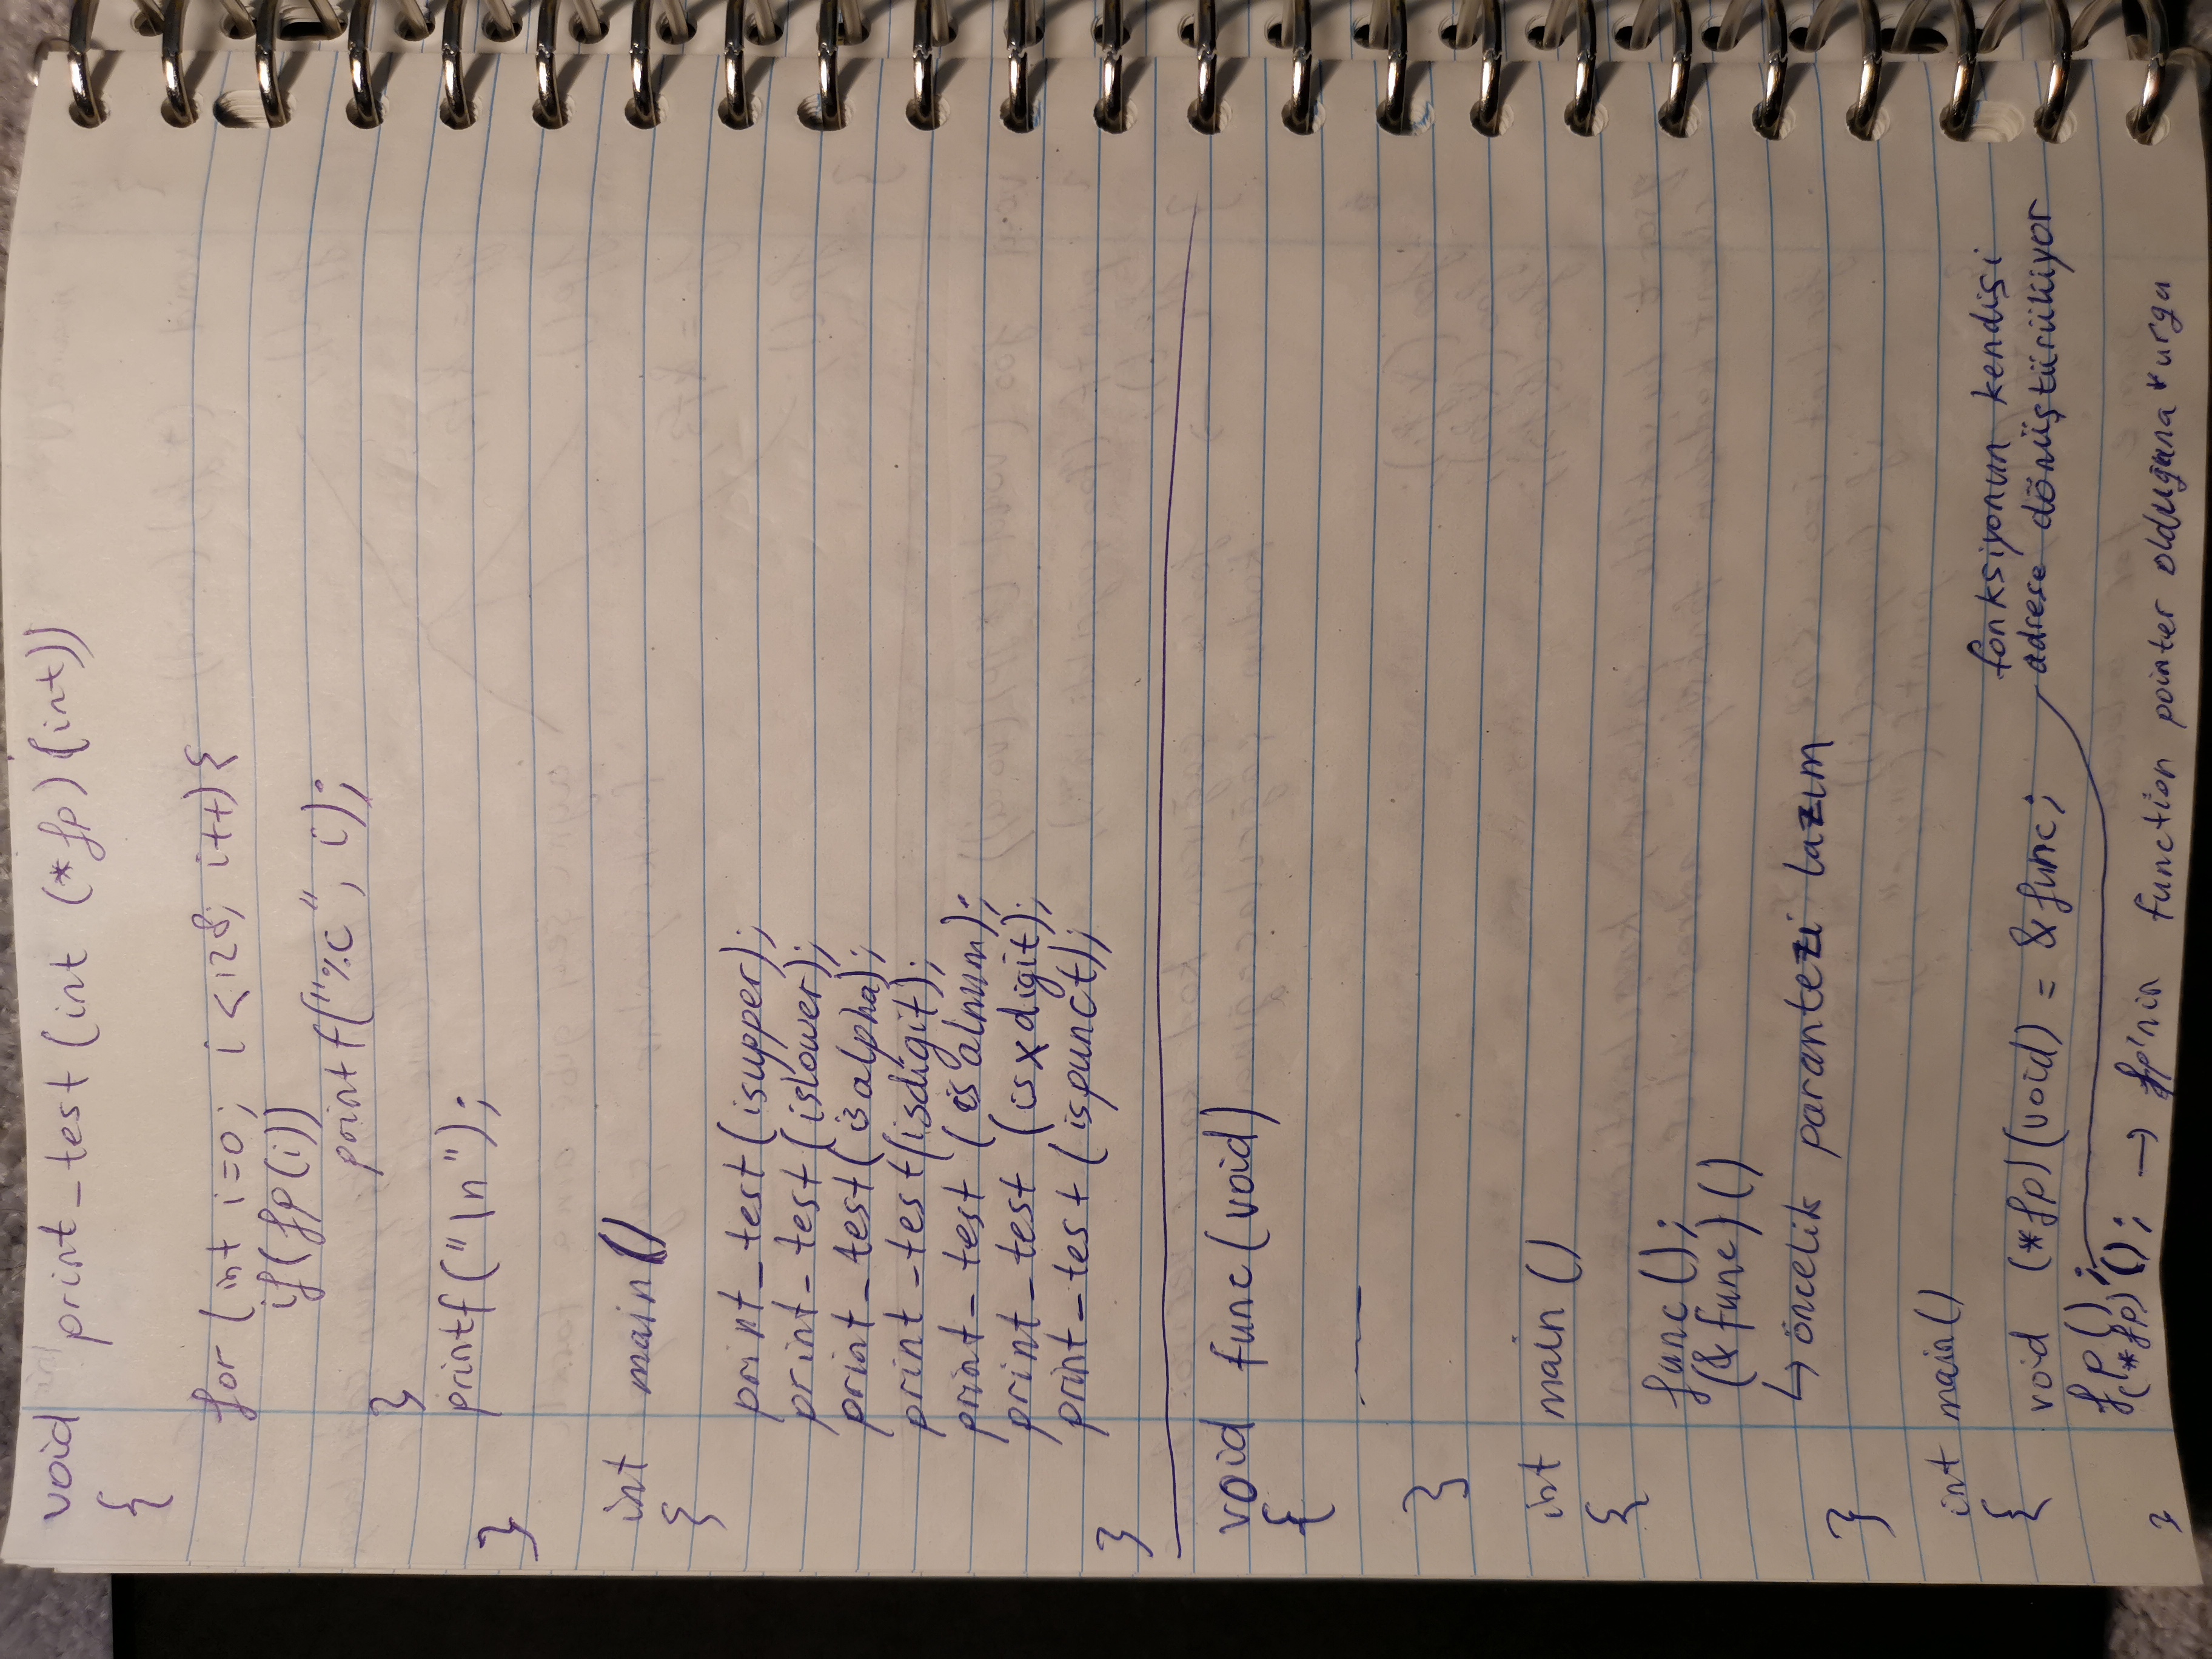 void print_test(int (*fp)(int))
{
for (int i=0; i<128; i++){
if(fp(i))
printf("%c", i);
}
printf("\n");
}
int main()
{
print_test(isupper);
print_test(islower);
print_test(isalpha);
print_test(isdigit);
print_test(isalnum);
print_test(isxdigit);
print_test(ispunct);
}
void func(void)
{
}
int main()
{
func();
(&func)()
↳ öncelik parantezi lazım
}
int main()
{
fonksiyonun kendisi
adrese dönüştürülüyor
void (*fp)(void) = &func;
fp();
(*fp)(); → fp'nin function pointer olduğuna vurgu
}